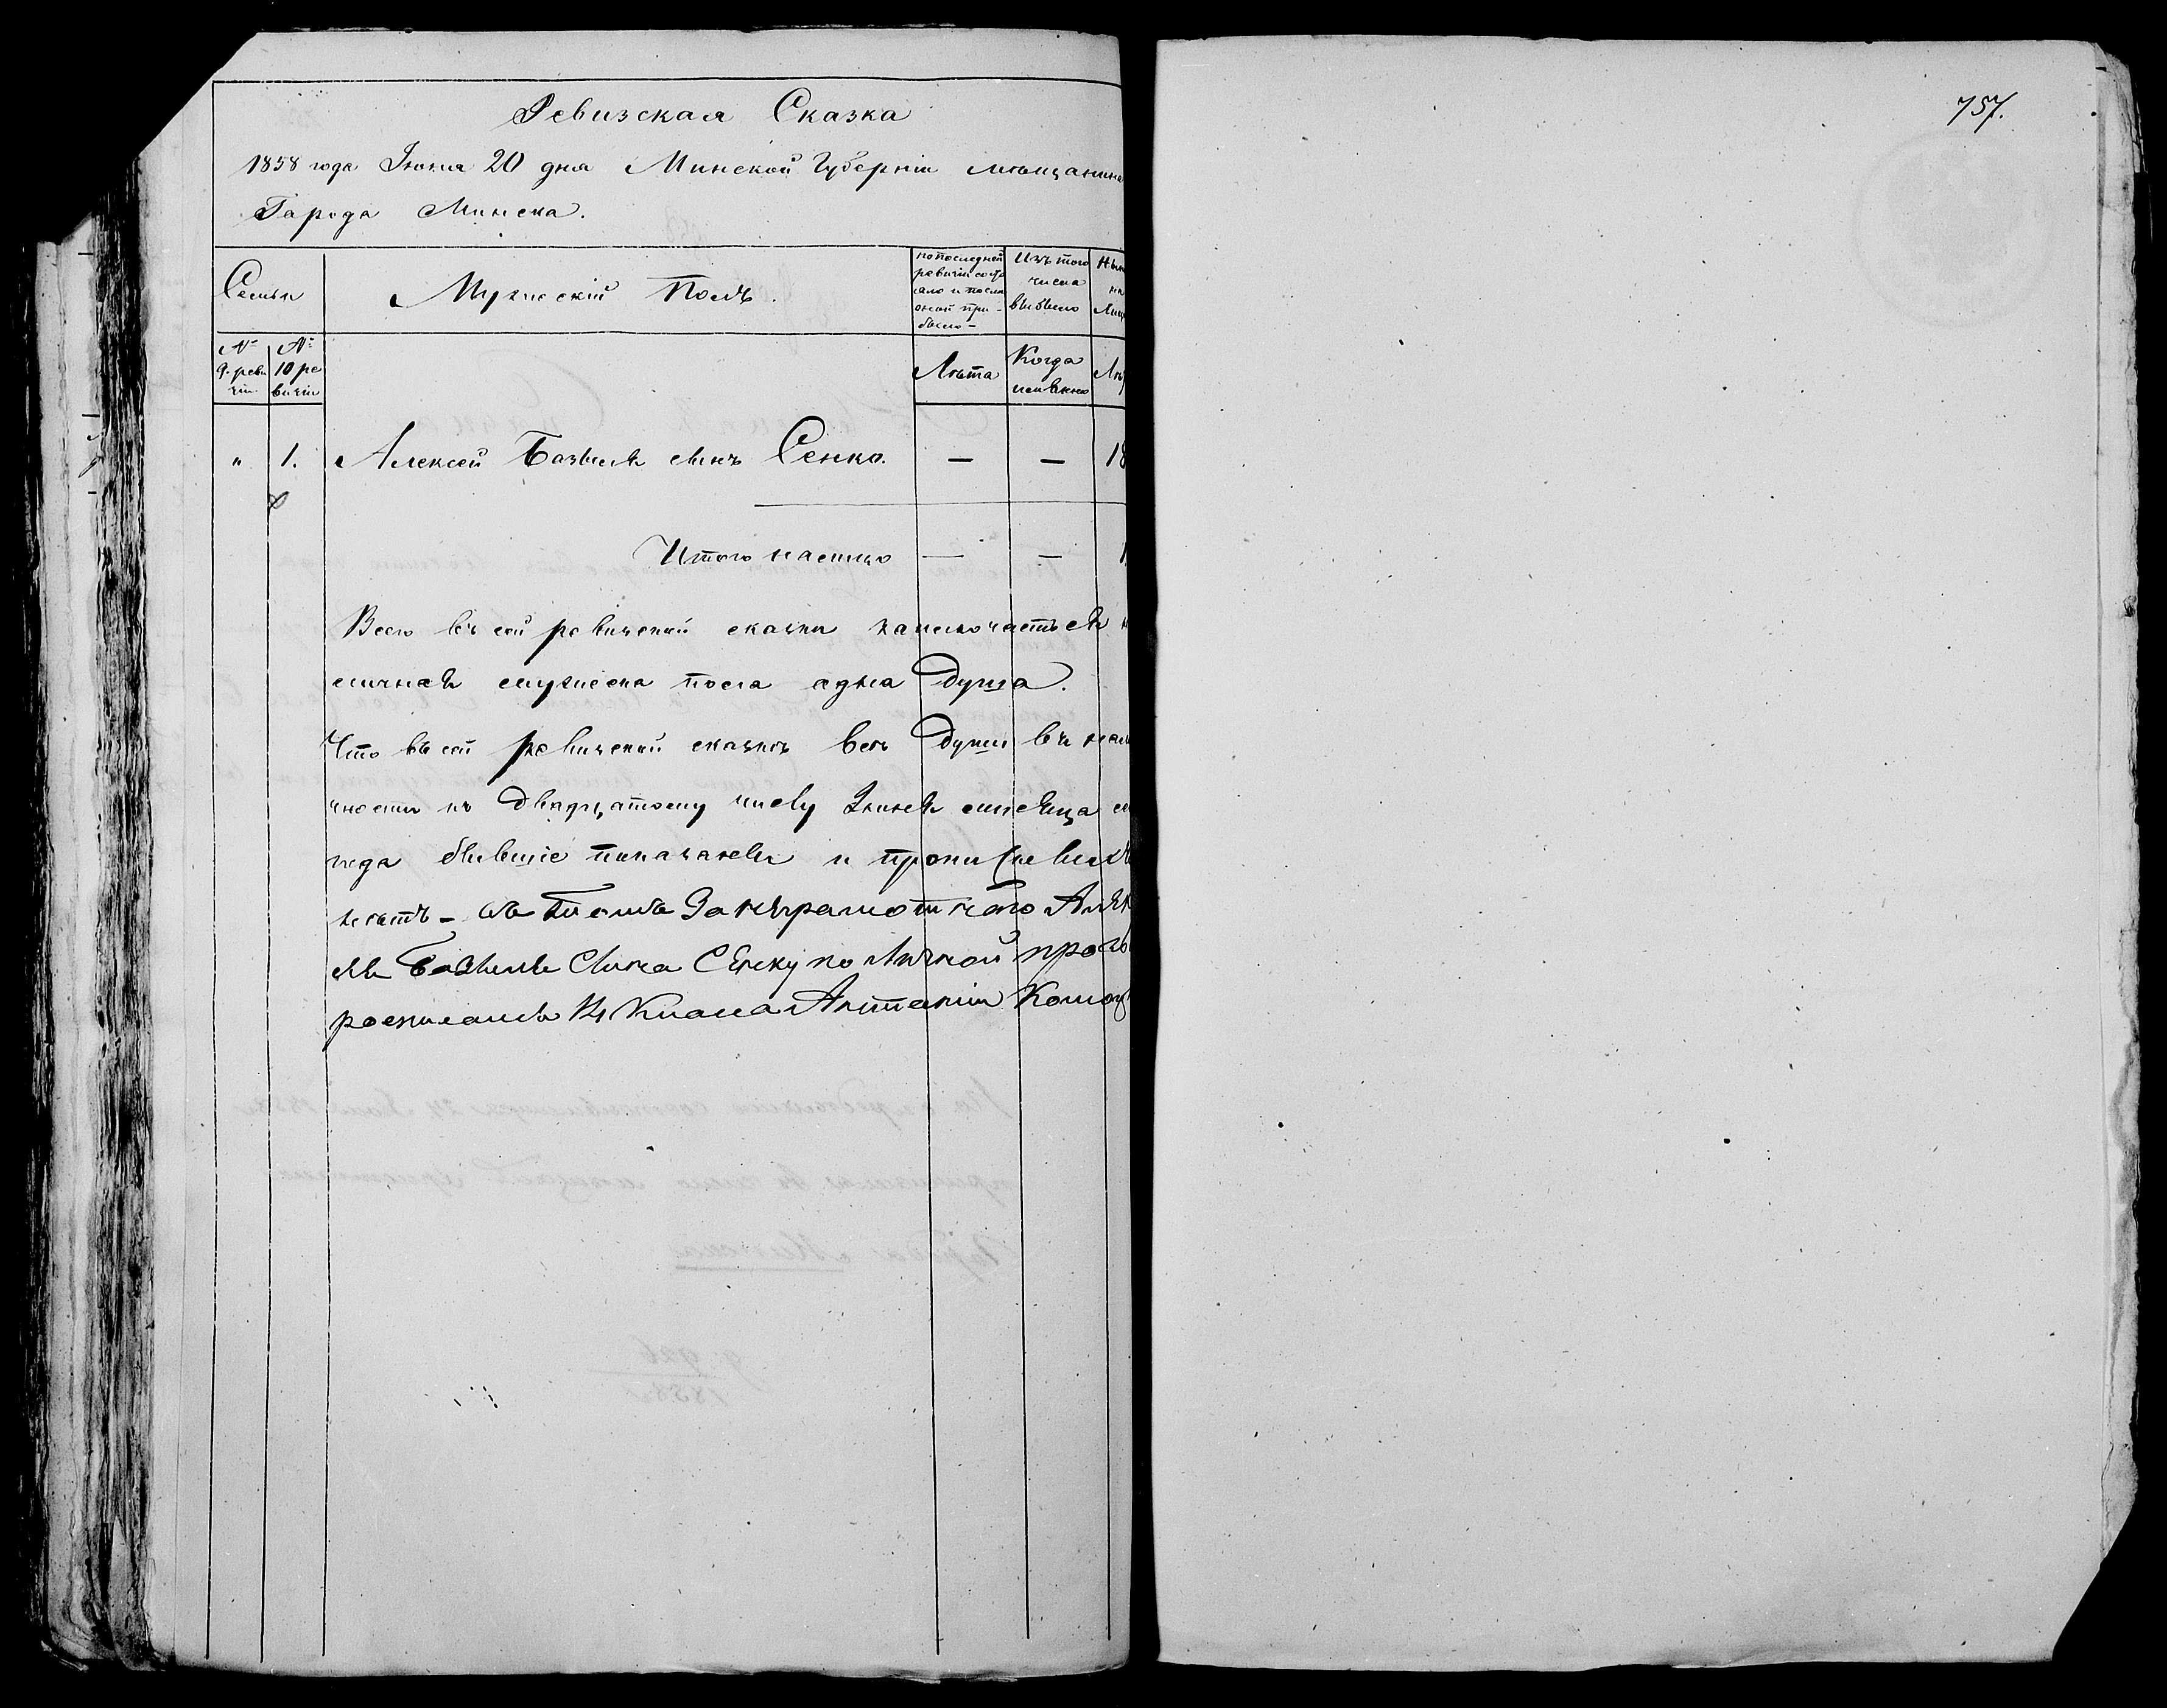 757.
Ревизская Сказка
1858 года Июня 20 дня Минской Губерніи мѣщанина
Города Минска.
Семьи
Мужескій Полъ.
по последней
ревизіи состо
яло и после
оной при-
было-
Изъ того
числа
выбыло
№
9. реви
зіи
№
10 ре
визіи
Лѣта
Когда
именно
" 1. Алексей Базылев сынъ Сенко. — — 18
Итого налицо — — 1
Всего въ сей ревизской сказки заключаетъся
личная мужеска пола адна душа.
Что въ сей ревизской сказкѣ всѣ души въ нали
чности къ двадцатому числу Июня месяца
года бывшіе показаневи и
нетъ - въ Томъ За неграмотного
Базыльева Сына Сенку по Личной прозь
росписался Антаніи